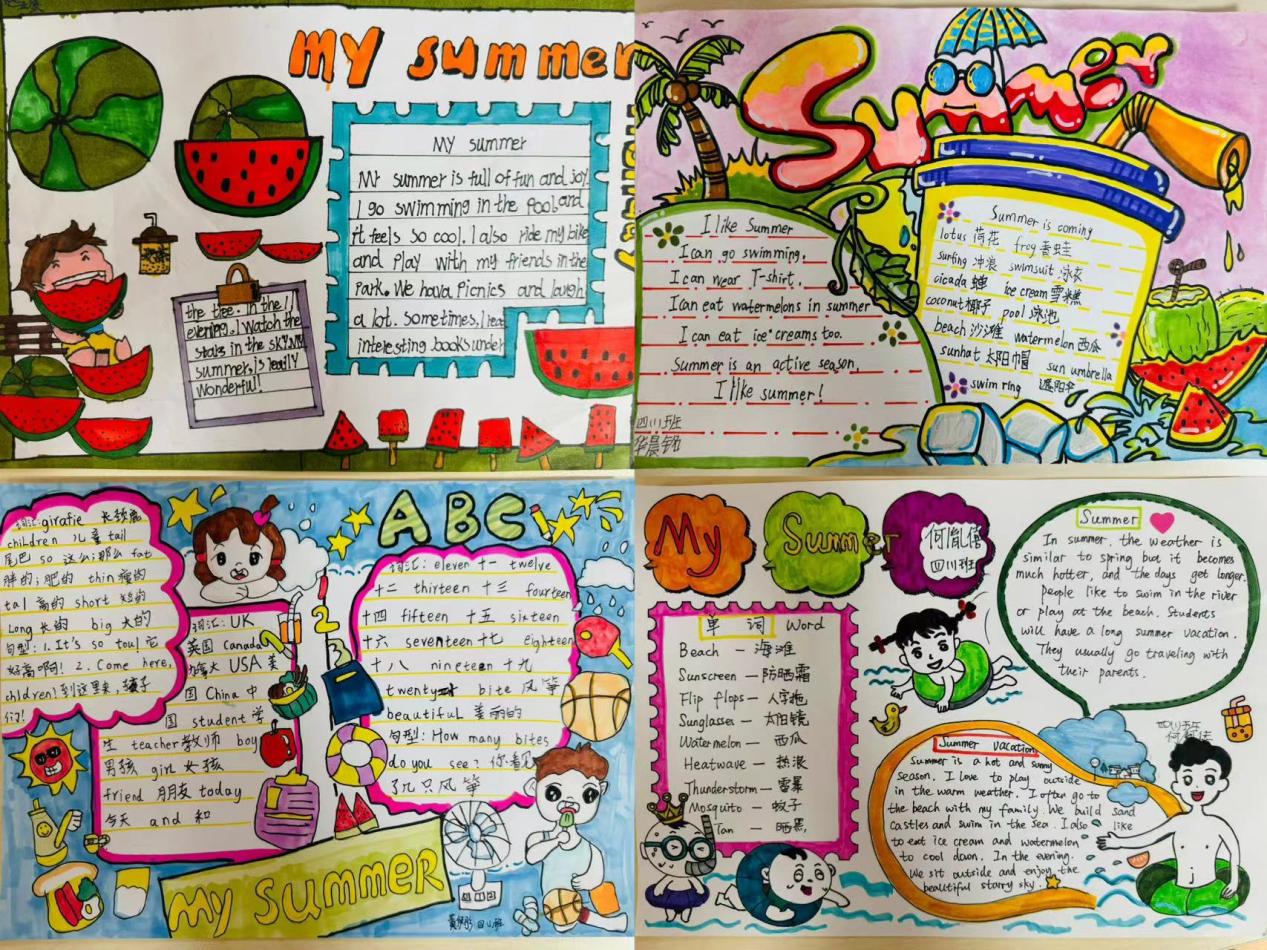 my summer
MY summer
My summer is full of fun and joy
I go swimming in the pool, and
it feels so cool. I also ride my bike
and Play with my friends in the
Park. We hava Picnics and laugh
a lot. sometimes, I read
interesting books under
the tree. In the
evening, I Watch the
stars in the sky. My
summer, is really
Wonderful!
Summer
I like Summer
I can go swimming.
I can wear T-shirt.
I can eat watermelons in summer
I can eat ice creams too.
Summer is an active season,
I like summer!
四川班
Summer is coming
lotus 荷花 frog 青蛙
surfing 冲浪 swimsuit 泳衣
cicada 蝉 ice cream 雪糕
coconut 椰子 pool 泳池
beach 沙滩 watermelon 西瓜
sunhat 太阳帽 sun umbrella
swim ring 遮阳伞
ABC
词汇: girafie 长颈鹿
children 儿童 tail
尾巴 so 这么;那么 fat
胖的;肥的 thin 瘦的
tal 高的 short 短的
Long 长的 big 大的
句型: 1. It's so toul 它
好高啊! 2. Come here,
chldren! 到这里来,孩子
们!
词汇: UK
英国 Canada
加拿大 USA 美
国 China 中
国 student 学
生 teacher 教师 boy
男孩 girl 女孩
friend 朋友 today
今天 and 和
词汇: eleven 十一 twelve
十二 thirteen 十三 fourteen
十四 fifteen 十五 sixteen
十六 seventeen 十七 eighteen
十八 nineteen 十九
twenty 十 bite 风筝
beautiful 美丽的
句型: How many bites
do you see? 你看见
了几只风筝
1
2
My Summer
四川班
My Summer
四川班
单词 Word
Beach — 海滩
Sunscreen — 防晒霜
Flip flops — 人字拖
Sunglasses — 太阳镜
Watermelon — 西瓜
Heatwave — 热浪
Thunderstorm — 雷暴
Mosquito — 蚊子
Tan — 晒黑
Summer
In summer, the weather is
similar to spring but it becomes
much hotter, and the days get longer.
people like to swim in the river
or play at the beach. Students
will have a long summer vacation.
They usually go traveling with
their parents.
四川班
Summer vacation
Summer is a hot and sunny
season. I love to play outside
in the warm weather. I often go to
the beach with my family. We build sand
castles and swim in the sea. I also like
to eat ice cream and watermelon
to cool down. In the evening.
We sit outside and enjoy the
beautiful starry sky.